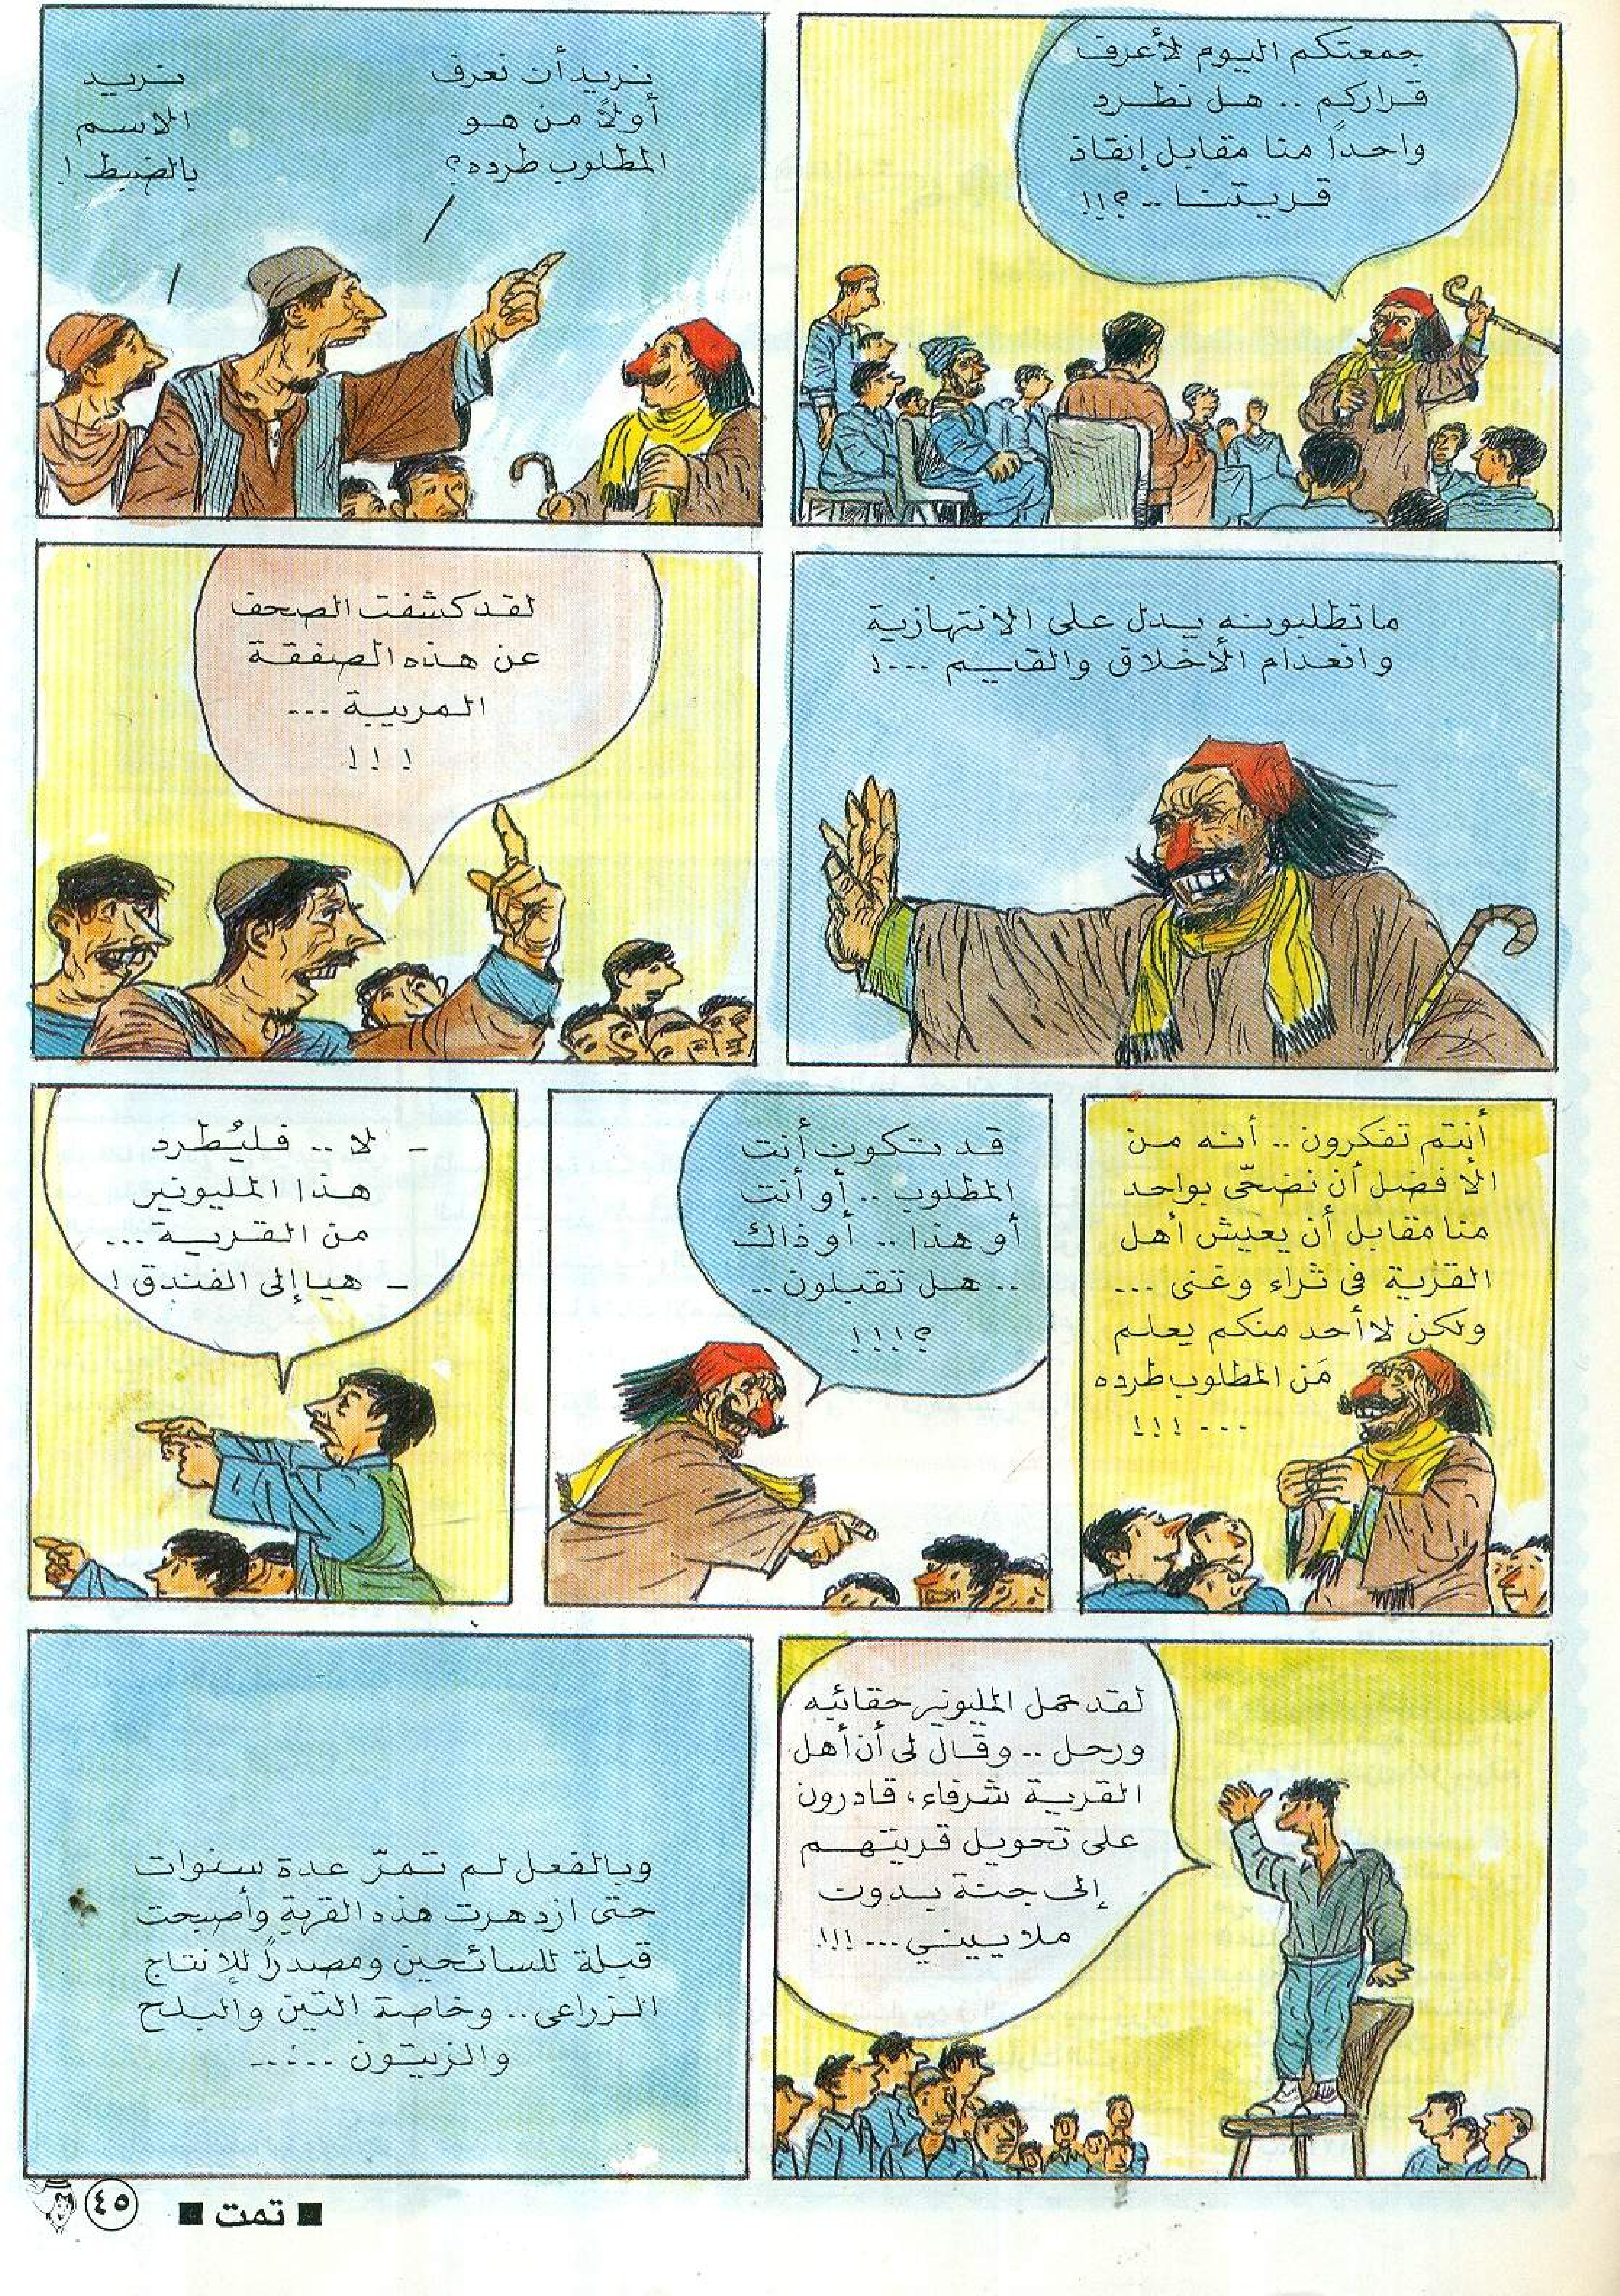 جمعتكم اليوم لأعرف
قراركم .. هل نطرد
واحداً منا مقابل إنقاذ
قريتنا .. ؟!!
نريد أن نعرف
أولاً من هو
المطلوب طرده؟
نريد
الاسم
بالضبط !
ما تطلبونه يدل على الانتهازية
وانعدام الأخلاق والقيم ...!
لقد كشفت الصحف
عن هذه الصفقة
المريبة ...
! ! !
أنتم تفكرون .. أنه من
الأفضل أن نضحّى بواحد
منا مقابل أن يعيش أهل
القرية فى ثراء وغنى ...
ولكن لا أحد منكم يعلم
مَن المطلوب طرده
... !!!
قد تكون أنت
المطلوب .. أو أنت
أو هذا .. أو ذاك
.. هل تقبلون ..
؟!!!
- لا .. فليُطرد
هذا المليونير
من القرية ...
- هيا إلى الفندق !
لقد حمل المليونير حقائبه
ورحل .. وقال لى أن أهل
القرية شرفاء، قادرون
على تحويل قريتهم
إلى جنة بدون
ملاييني ... !!!
وبالفعل لم تمرّ عدة سنوات
حتى ازدهرت هذه القرية وأصبحت
قبلة للسائحين ومصدراً للإنتاج
الزراعى .. وخاصة التين والبلح
والزيتون .....
■ تمت ■
٤٥